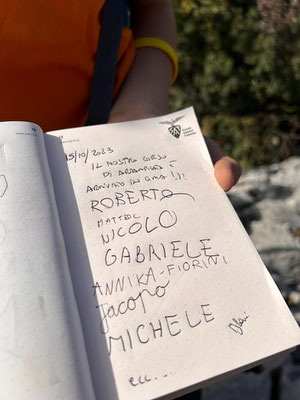 15/10/2023
IL NOSTRO CORSO
DI ARRAMPICATA È
ARRIVATO IN CIMA !)!
ROBERTO
MATTEO
NICOLO
GABRIELE
ANNIKA-FIORINI
Jacopo
MICHELE
ecc....